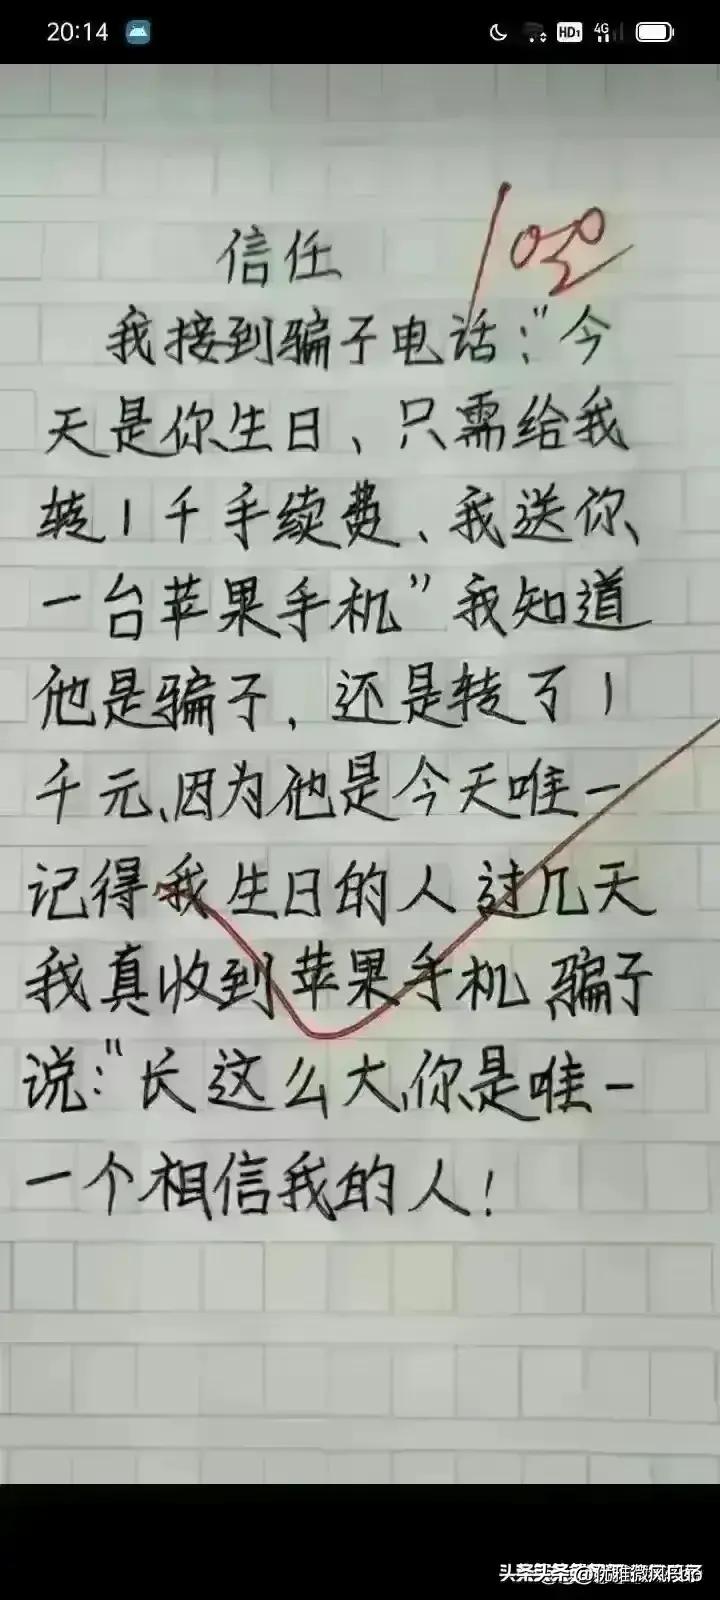 20:14
HD1 4G
信任
100
我接到骗子电话:"今
天是你生日、只需给我
转1千手续费、我送你、
一台苹果手机"我知道
他是骗子,还是转了1
千元、因为他是今天唯一
记得我生日的人过几天
我真收到苹果手机,骗子
说:"长这么大,你是唯一
一个相信我的人!